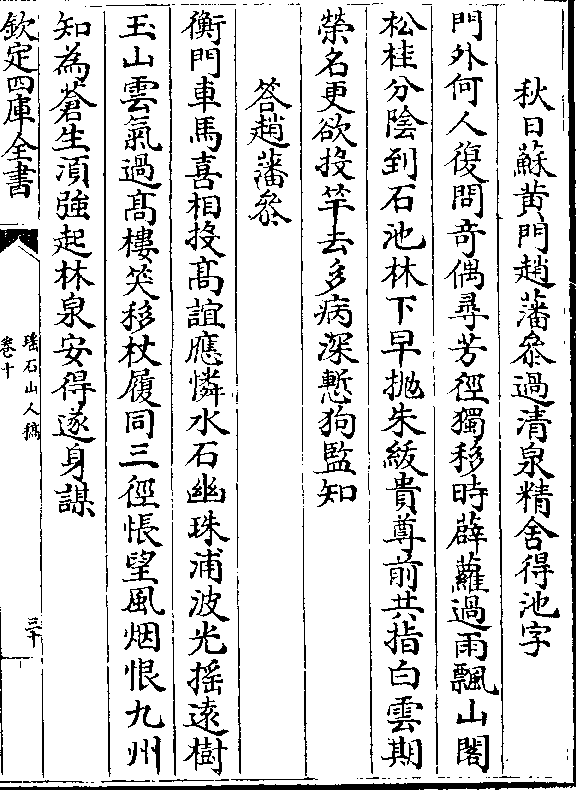 秋日蘇黄門趙藩叅過清泉精舍得池字
門外何人復問奇偶尋芳徑獨移時薜蘿過雨飄山閣
松桂分陰到石池林下早抛朱紱貴尊前共指白雲期
榮名更欲投竿去多病深慙狗監知
答趙藩叅
衡門車馬喜相投髙誼應憐水石幽珠浦波光摇逺樹
玉山雲氣過髙樓笑移杖履同三徑悵望風烟恨九州
知為蒼生湏強起林泉安得遂身謀
欽定四庫全書
瑤石山人稿
卷十
三十